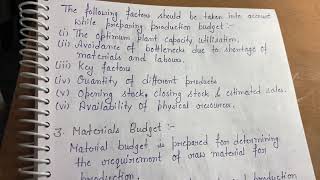 The following factors should be taken into account
while preparing production budget:-
(i) The optimum plant capacity utilisation.
(ii) Avoidance of bottlenecks due to shortage of
materials and labour.
(iii) Key factors
(iv) Quantity of different products
(v) Opening stock, closing stock & estimated sales.
(vi) Availability of physical resources.
3. Materials Budget :-
Material budget is prepared for determining
the requirement of raw material for
production.
production